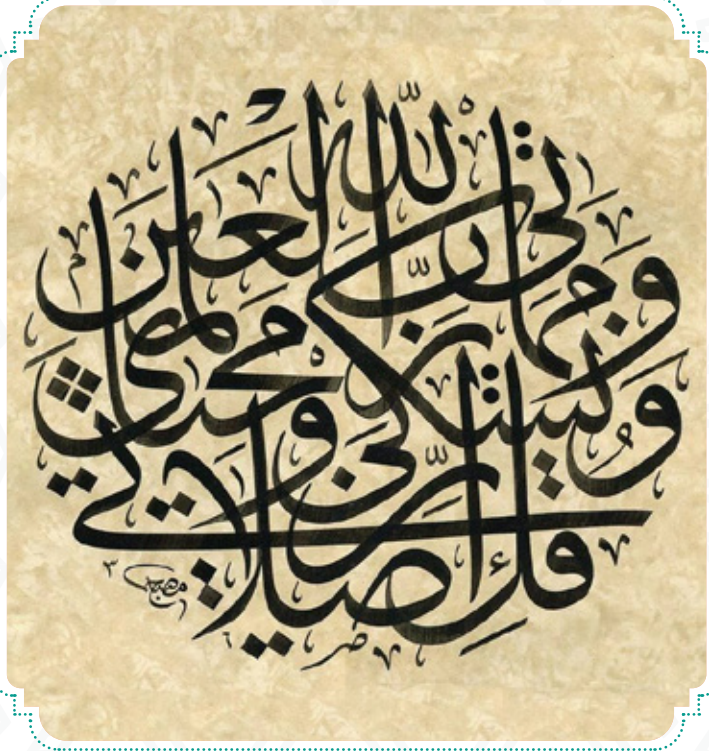 قُلْ إِنَّ صَلَاتِي
وَنُسُكِي وَمَحْيَايَ
وَمَمَاتِي لِلَّهِ رَبِّ الْعَالَمِينَ